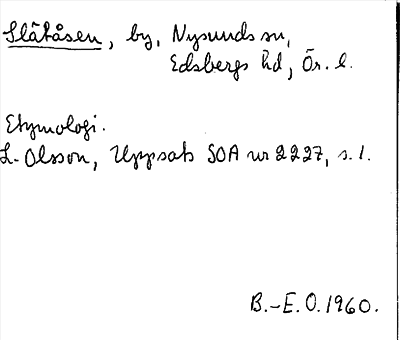 Slåtåsen, by, Nysunds sn,
Edsbergs hd, Ör. l.
Etymologi.
L. Olsson, Uppsats SOA nr 2227, s. 1.
B.-E. O. 1960.